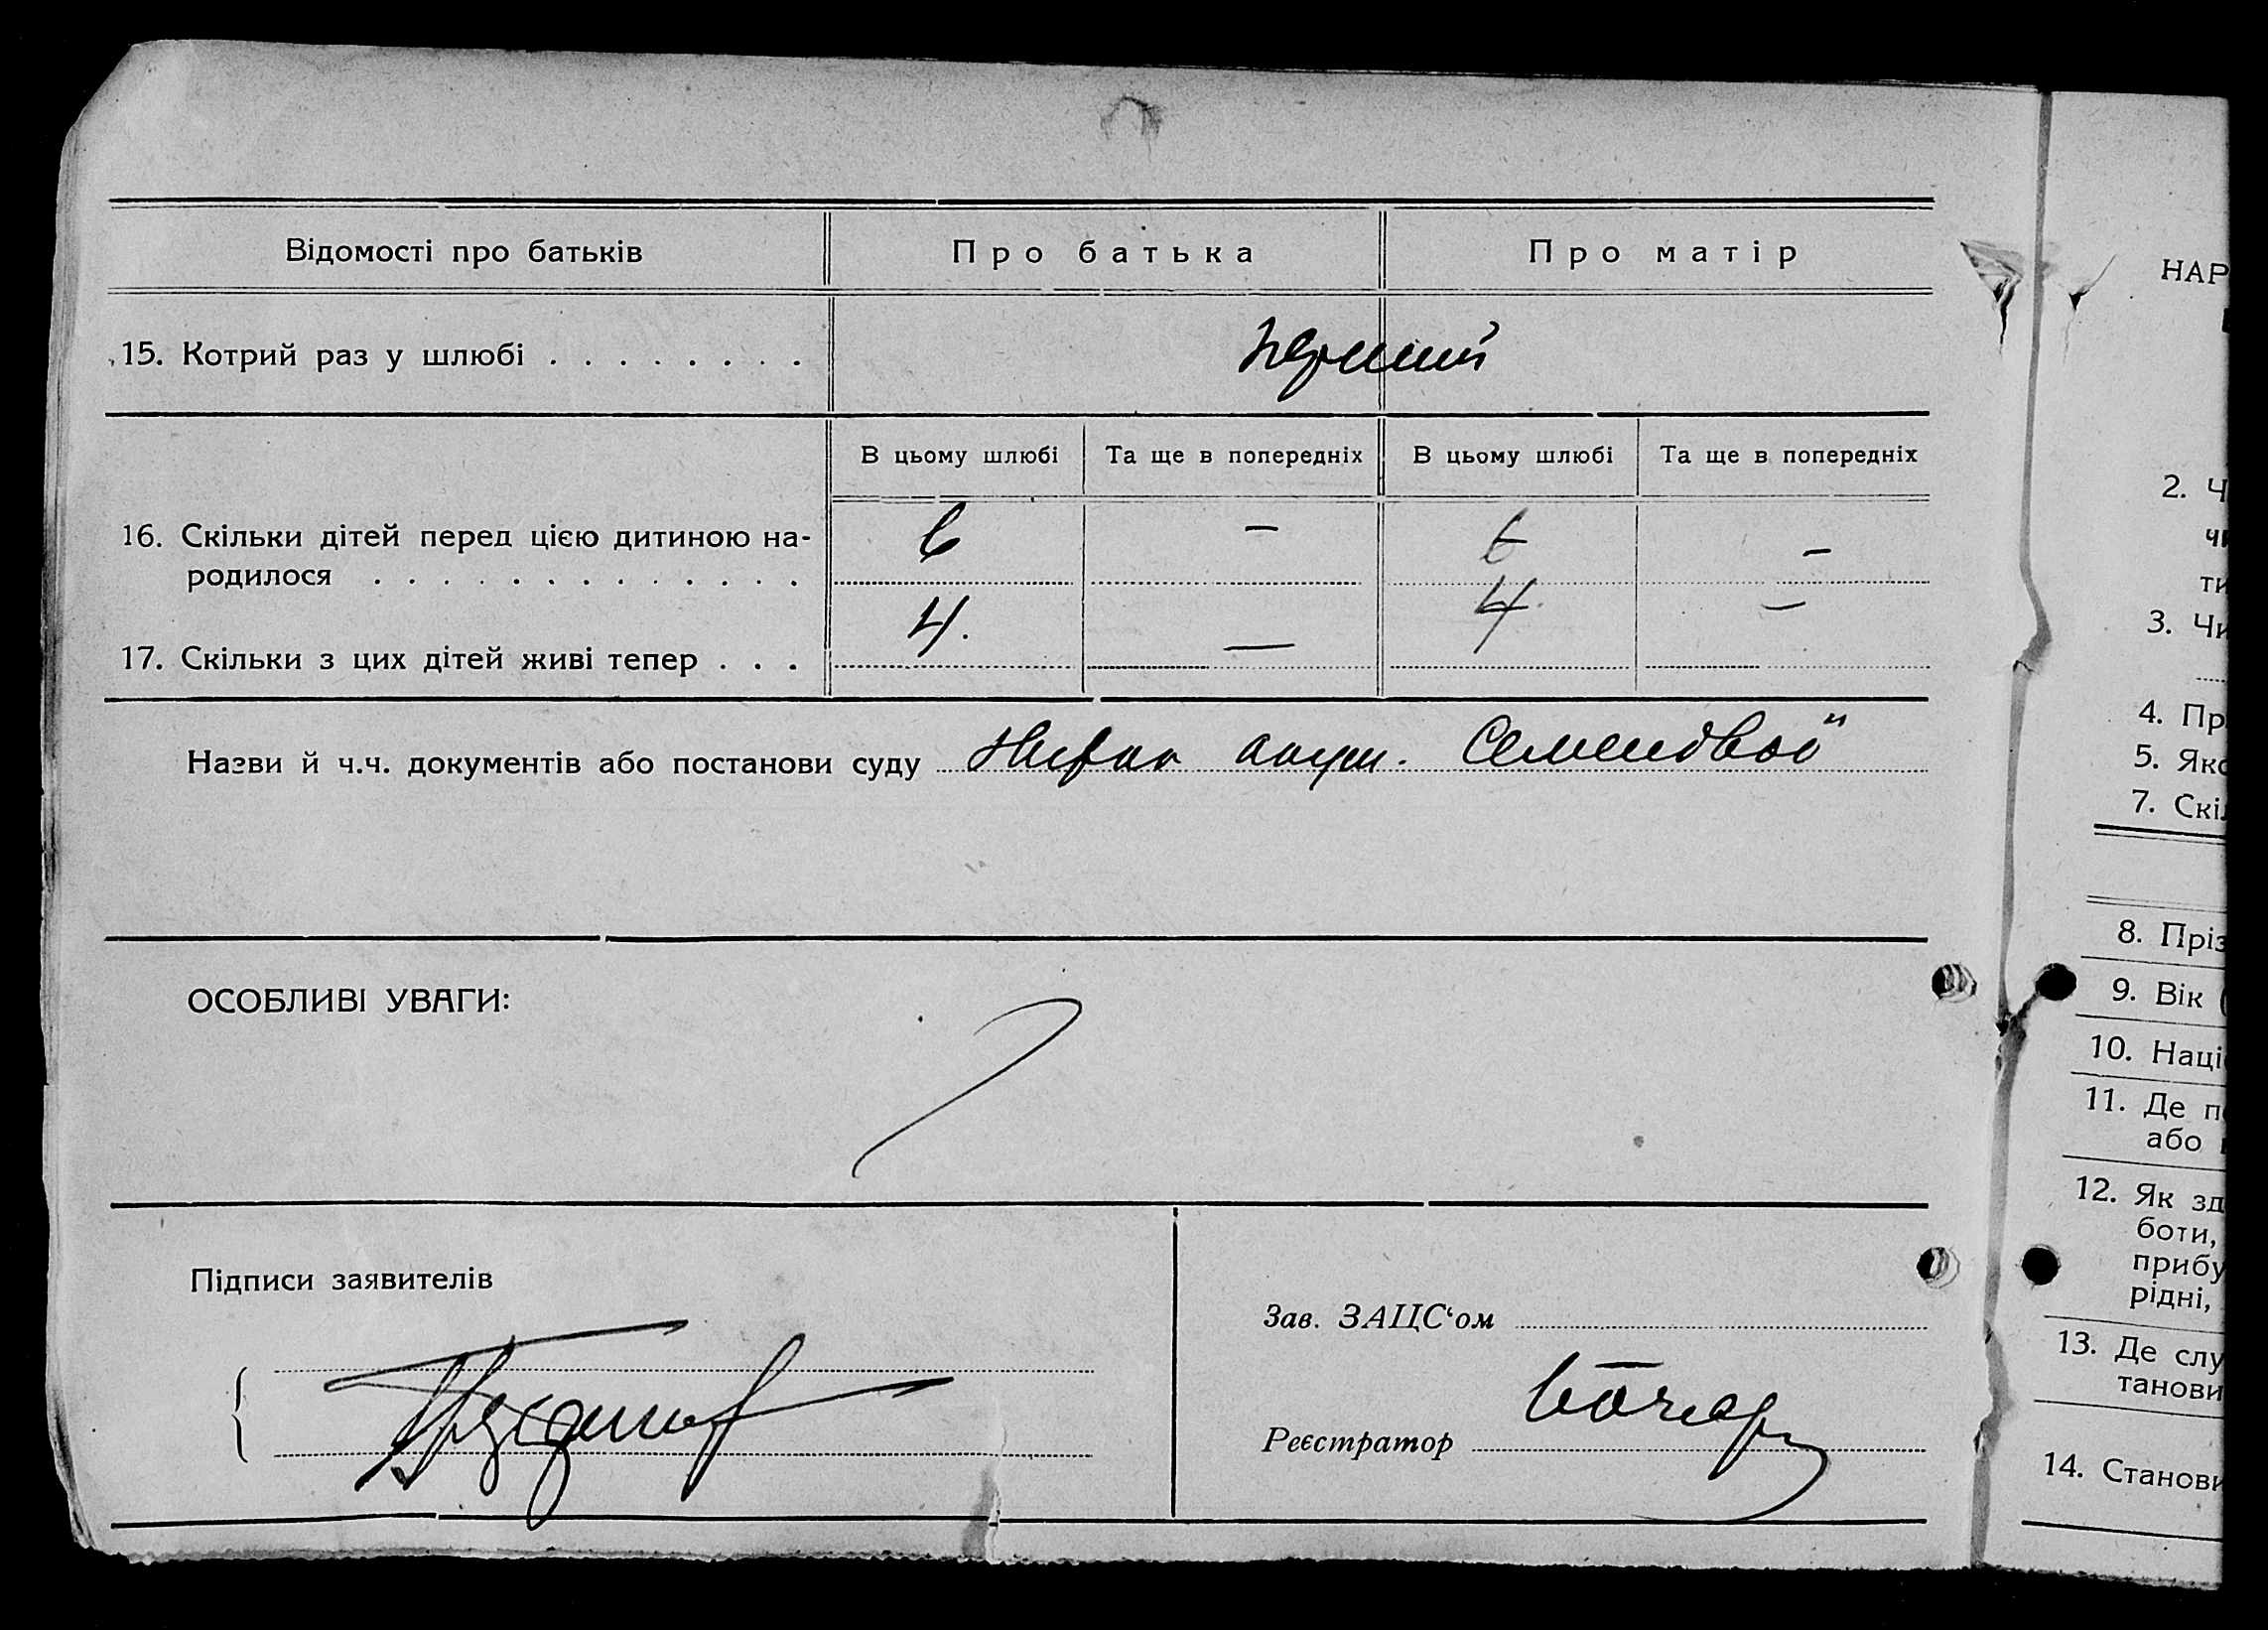 Відомості про батьків Про батька Про матір
15. Котрий раз у шлюбі . . . . . . . . перший
В цьому шлюбі Та ще в попередніх В цьому шлюбі Та ще в попередніх
16. Скільки дітей перед цією дитиною на-
родилося . . . . . . . . . . . . . 6 — 6 —
17. Скільки з цих дітей живі тепер . . . 4. — 4. —
Назви й ч.ч. документів або постанови суду акуш. Семеновой
ОСОБЛИВІ УВАГИ:
Підписи заявителів
Зав. ЗАЦС‘ом
Реєстратор Бочар
НАР
2. Ч
чи
ти
3. Чи
4. Пр
5. Яко
7. Скіл
8. Пріз
9. Вік (
10. Наці
11. Де п
або
12. Як зд
боти,
прибу
рідні,
13. Де слу
танови
14. Станови